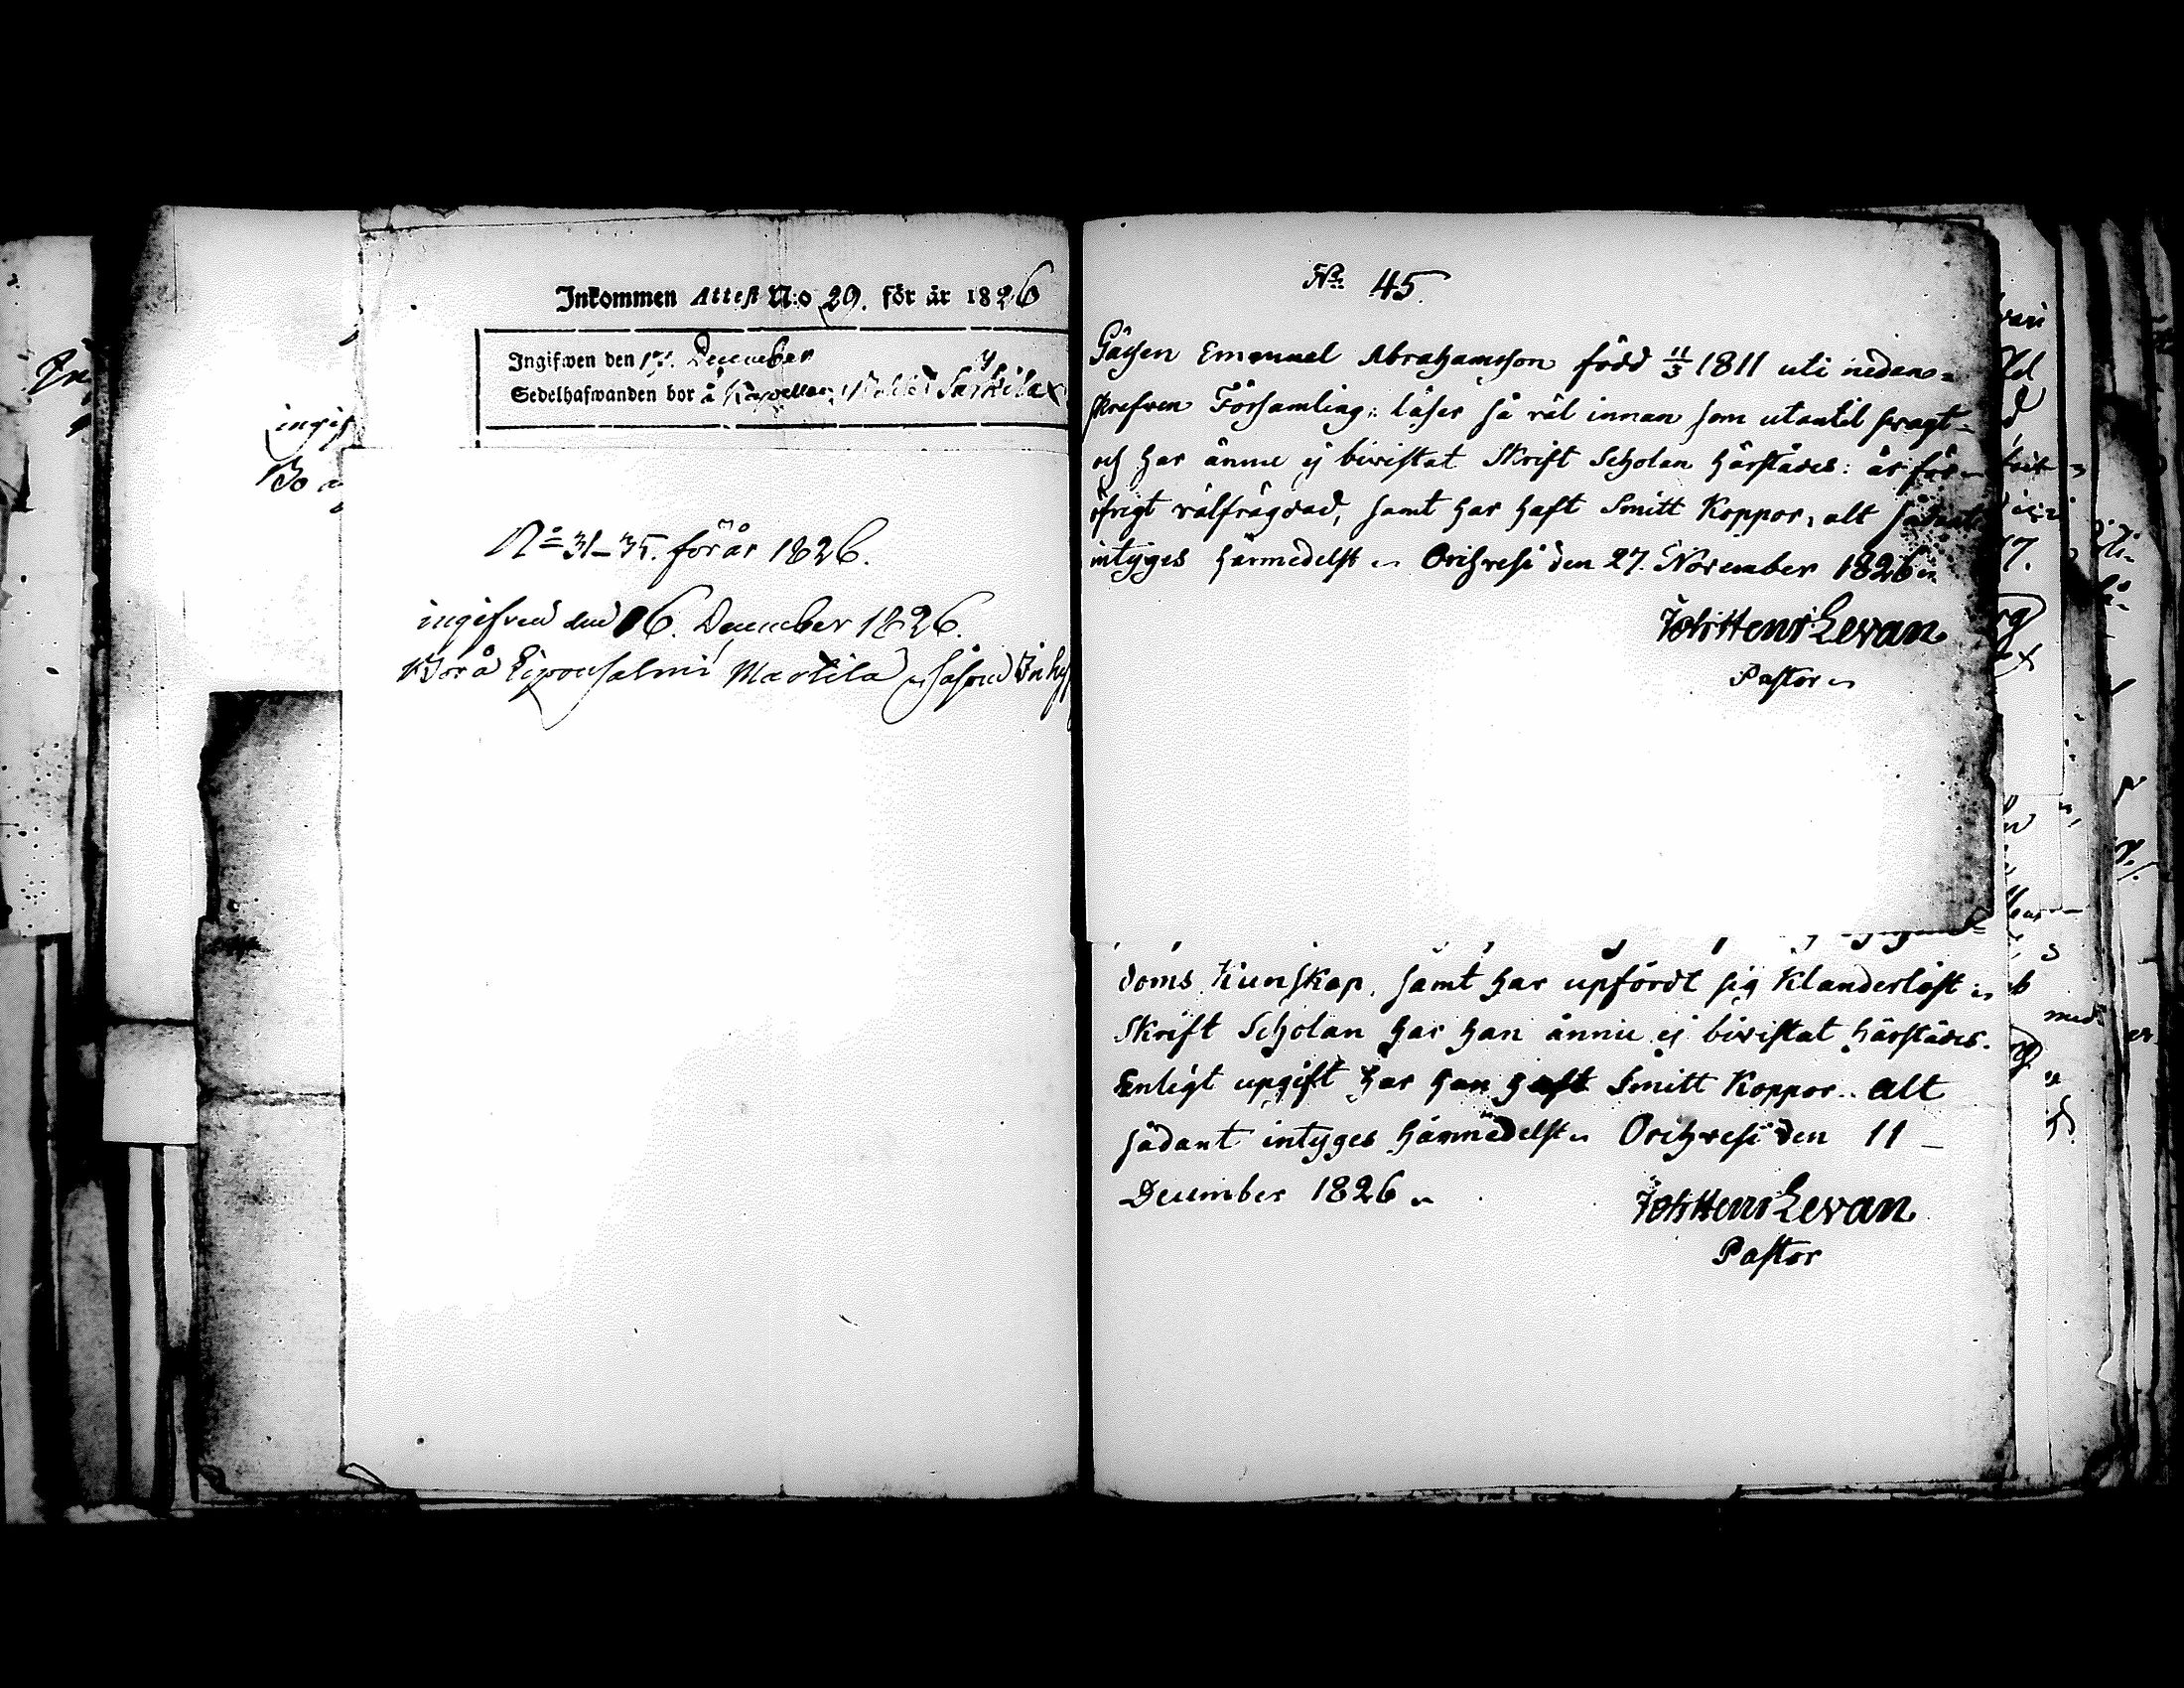 Inkommen Attest N:o 29. för år 1826
Ingifwen den 17. December
Sedelhafwanden bor å Kapellans Särkilax
ingif
Bo
No 31-35. för år 1826.
ingifven den 16. December 1826.
Bor å Eiponsalmi Martila såsom Inhys
No 45.
Gåssen Emanuel Abrahamsson född 11/3 1811 uti nedan=
skrefven Församling: läser så väl innan som utantil svagt
och har ännu ej bivistat Skrift Scholan härstädes: är för
öfrigt välfrägdad, samt har haft Smitt Koppor, alt sådant
intyges härmedelst Orihvesi den 27. November 1826
Joh: Henr Levan
Pastor
doms Kunskap, samt har upfördt sig Klanderlöst
Skrift Scholan har han ännu ej bivistat härstädes.
Enligt upgift har han haft Smitt Koppor.. alt
sådant intyges härmedelst Orihvesi den 11
December 1826
Joh: Henr Levan
Pastor